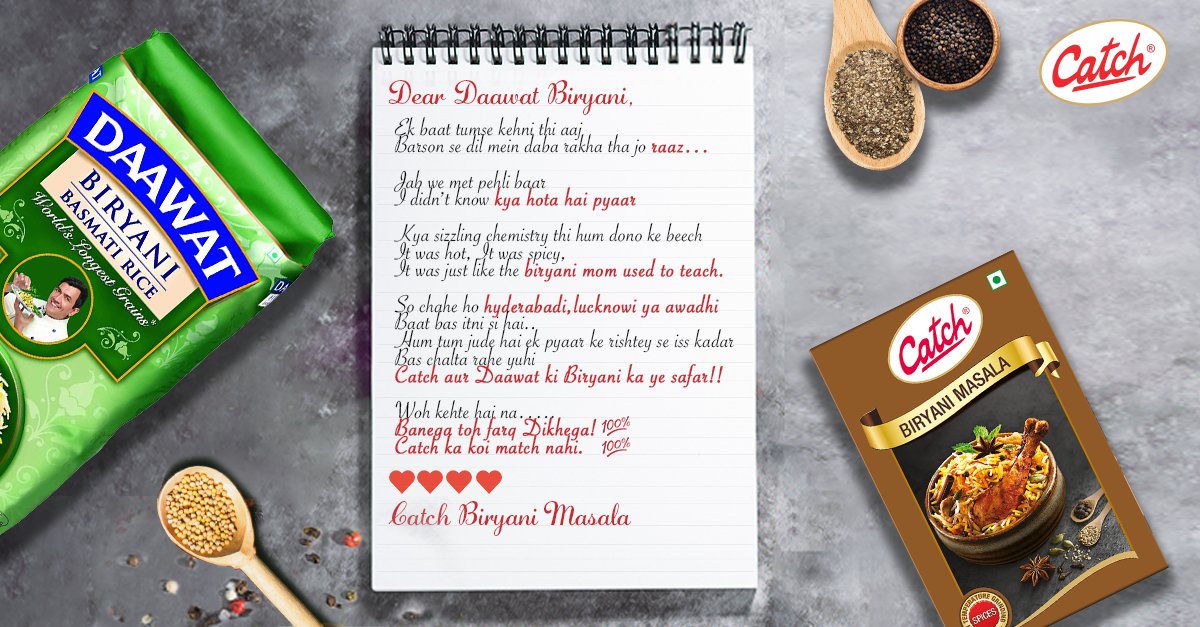 DAAWAT
BIRYANI
BASMATI RICE
World's Longest Grains*
Dear Daawat Biryani,
Ek baat tumse kehni thi aaj
Barson se dil mein daba rakha tha jo raaz...
Jab we met pehli baar
I didn't know kya hota hai pyaar
Kya sizzling chemistry thi hum dono ke beech
It was hot, It was spicy,
It was just like the biryani mom used to teach.
So chahe ho hyderabadi,lucknowi ya awadhi
Baat bas itni si hai..
Hum tum jude hai ek pyaar ke rishtey se iss kadar
Bas chalta rahe yuhi
Catch aur Daawat ki Biryani ka ye safar!!
Woh kehte hai na.....
Banega toh farq Dikhega! 100%
Catch ka koi match nahi. 100%
Catch Biryani Masala
Catch®
Catch®
BIRYANI MASALA
TEMPERATURE GRINDING
SPICES